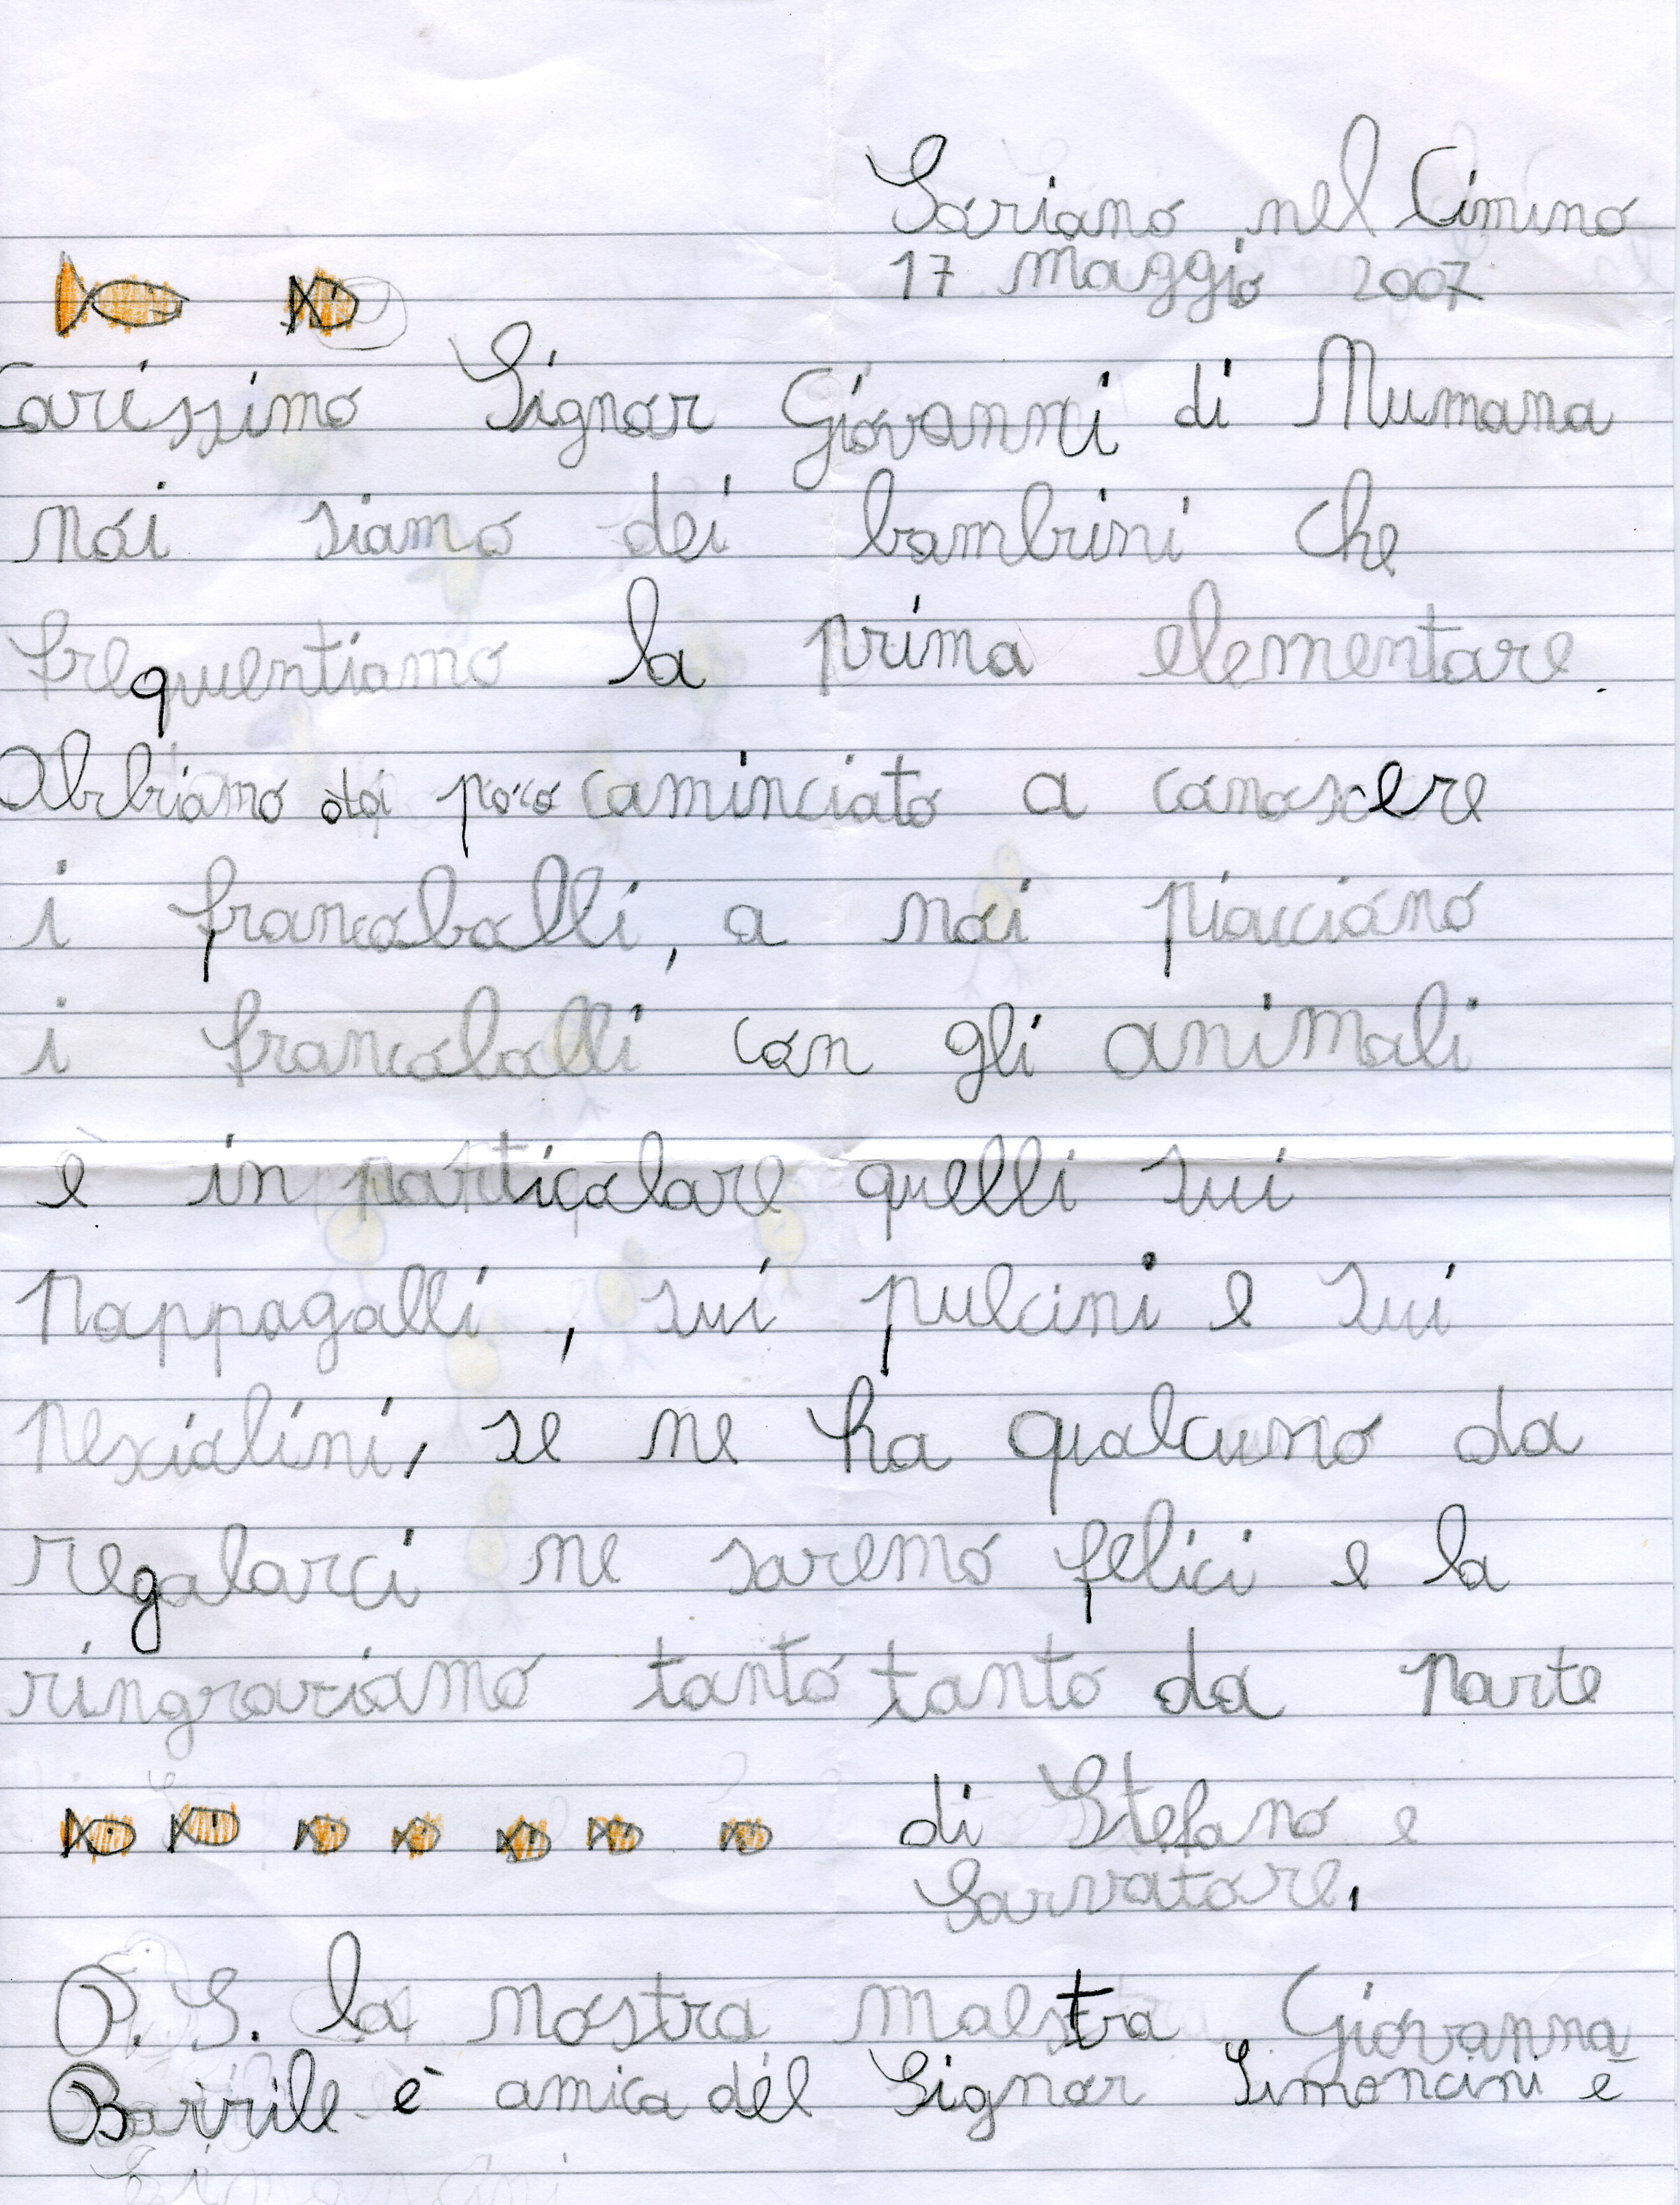 Soriano nel Cimino
17 maggio 2007
Carissimo Signor Giovanni di Mumana
noi siamo dei bambini che
frequentiamo la prima elementare.
Abbiamo da poco cominciato a conoscere
i francobolli, a noi piacciono
i francobolli con gli animali
e in particolare quelli sui
pappagalli, sui pulcini e sui
pesciolini, se ne ha qualcuno da
regalarci ne saremo felici e la
ringraziamo tanto tanto da parte
di Stefano e
Sarvatore,
P.S. la nostra maestra Giovanna
Barrile è amica del Signor Simoncini è
Simoncini